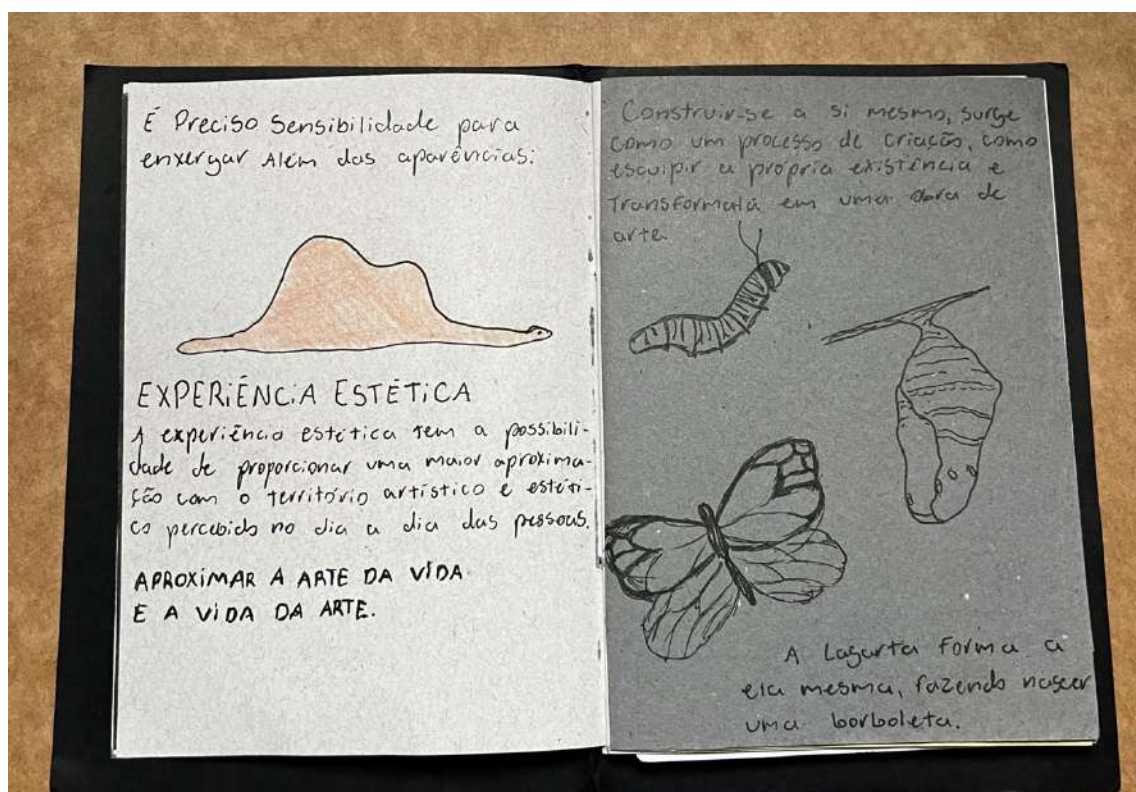 É Preciso Sensibilidade para
enxergar Além das aparências:
EXPERIÊNCIA ESTÉTICA
A experiência estética tem a possibili-
dade de proporcionar uma maior aproxima-
ção com o território artístico e estéti-
co percebido no dia a dia das pessoas.
APROXIMAR A ARTE DA VIDA
E A VIDA DA ARTE.
Construir-se a si mesmo, surge
como um processo de criação, como
esculpir a própria existência e
Transformala em uma obra de
arte.
A Lagarta forma a
ela mesma, fazendo nascer
uma borboleta.